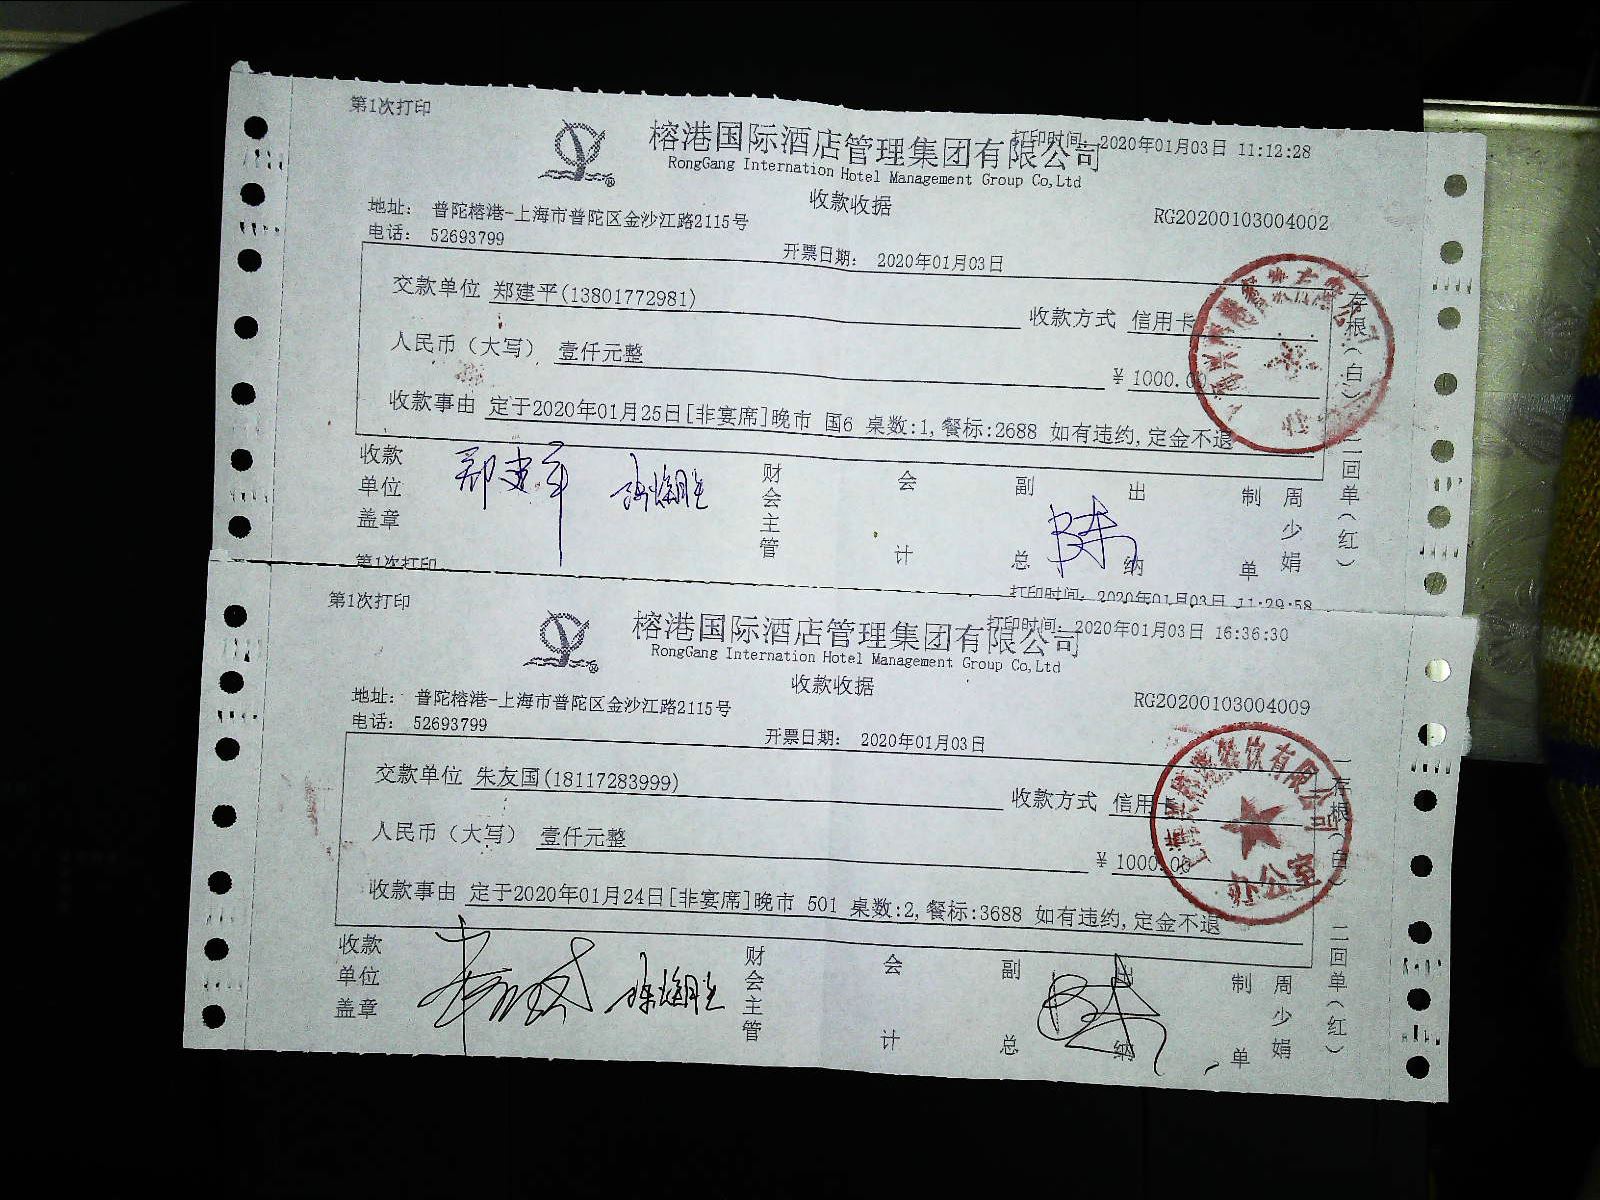 第1次打印
打印时间: 2020年01月03日 11:12:28
榕港国际酒店管理集团有限公司
RongGang Internation Hotel Management Group Co,Ltd
收款收据
地址: 普陀榕港-上海市普陀区金沙江路2115号
RG20200103004002
电话: 52693799
开票日期: 2020年01月03日
交款单位 郑建平(13801772981)
收款方式 信用卡
人民币(大写) 壹仟元整
¥ 1000.00
收款事由 定于2020年01月25日[非宴席]晚市 国6 桌数:1,餐标:2688 如有违约,定金不退
收款单位盖章
郑建平
财会主管
会计
副总
出纳
制单
周少娟
一存根(白)
二回单(红)
第1次打印
打印时间: 2020年01月03日 11:29:58
第1次打印
打印时间: 2020年01月03日 16:36:30
榕港国际酒店管理集团有限公司
RongGang Internation Hotel Management Group Co,Ltd
收款收据
地址: 普陀榕港-上海市普陀区金沙江路2115号
RG20200103004009
电话: 52693799
开票日期: 2020年01月03日
交款单位 朱友国(18117283999)
收款方式 信用卡
人民币(大写) 壹仟元整
¥ 1000.00
收款事由 定于2020年01月24日[非宴席]晚市 501 桌数:2,餐标:3688 如有违约,定金不退
餐饮有限公司
办公室
收款单位盖章
财会主管
会计
副总
出纳
制单
周少娟
一存根(白)
二回单(红)